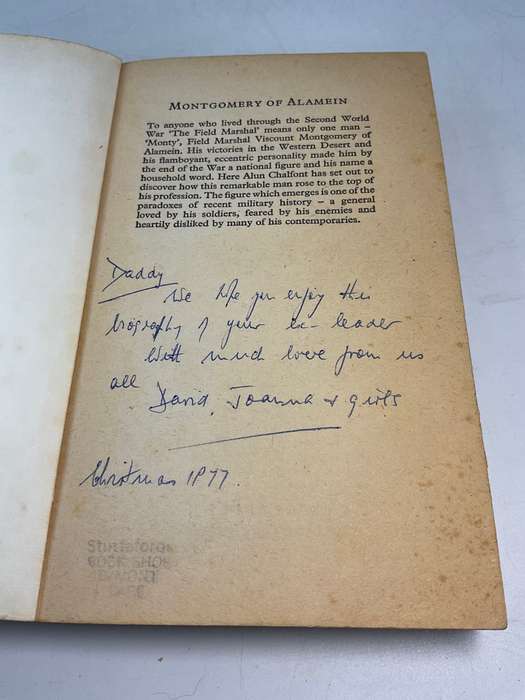 MONTGOMERY OF ALAMEIN
To anyone who lived through the Second World
War 'The Field Marshal' means only one man –
'Monty', Field Marshal Viscount Montgomery of
Alamein. His victories in the Western Desert and
his flamboyant, eccentric personality made him by
the end of the War a national figure and his name a
household word. Here Alun Chalfont has set out to
discover how this remarkable man rose to the top of
his profession. The figure which emerges is one of the
paradoxes of recent military history – a general
loved by his soldiers, feared by his enemies and
heartily disliked by many of his contemporaries.
Daddy
We hope you enjoy this
biography of your ex-leader
With much love from us
all David, Joanna & girls
Christmas 1977.
BOOK SHOP